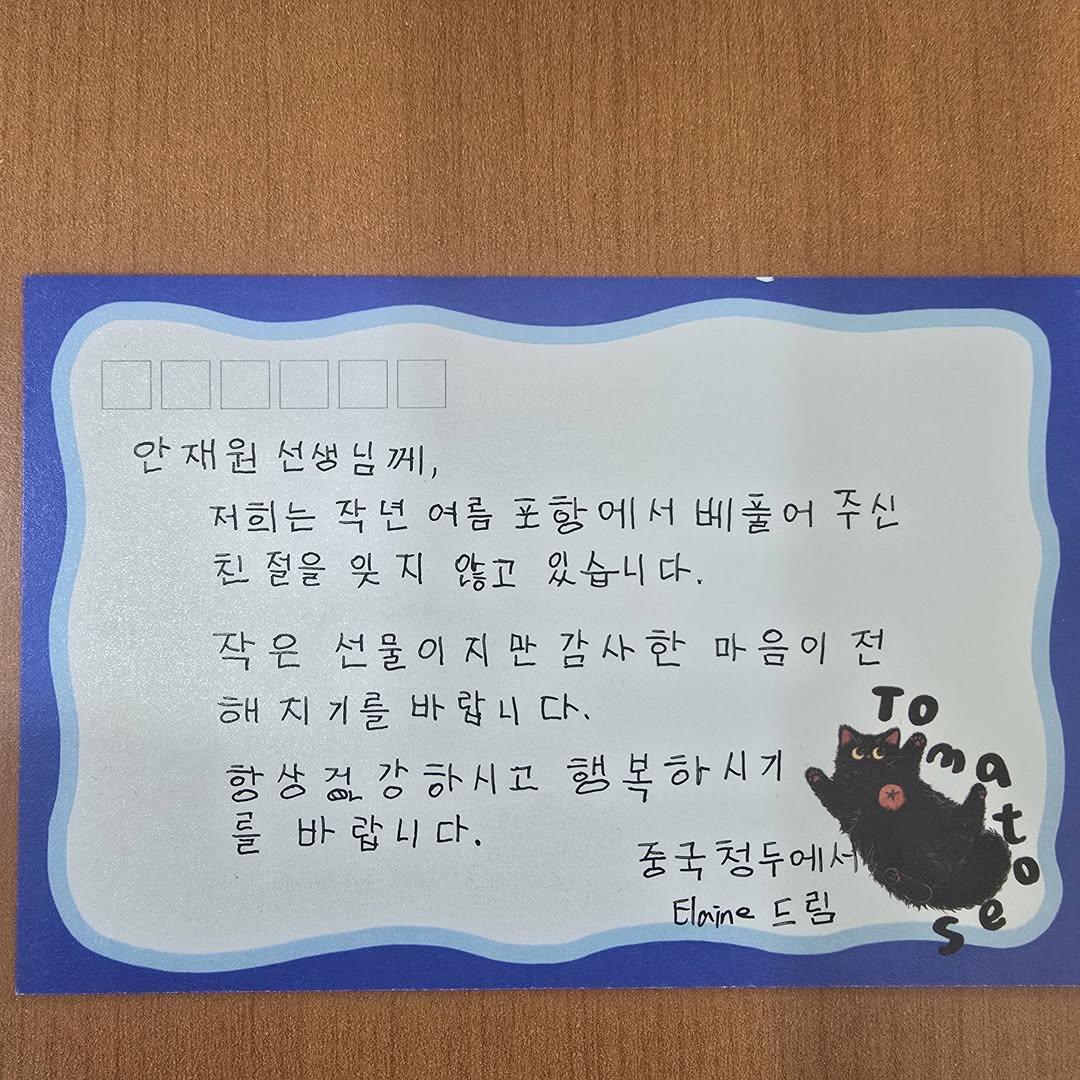 안재원 선생님께,
저희는 작년 여름 포항에서 베풀어 주신
친절을 잊지 않고 있습니다.
작은 선물이지만 감사한 마음이 전
해지기를 바랍니다.
항상 건강하시고 행복하시기
를 바랍니다.
중국 청두에서
Elaine 드림
Tomatose